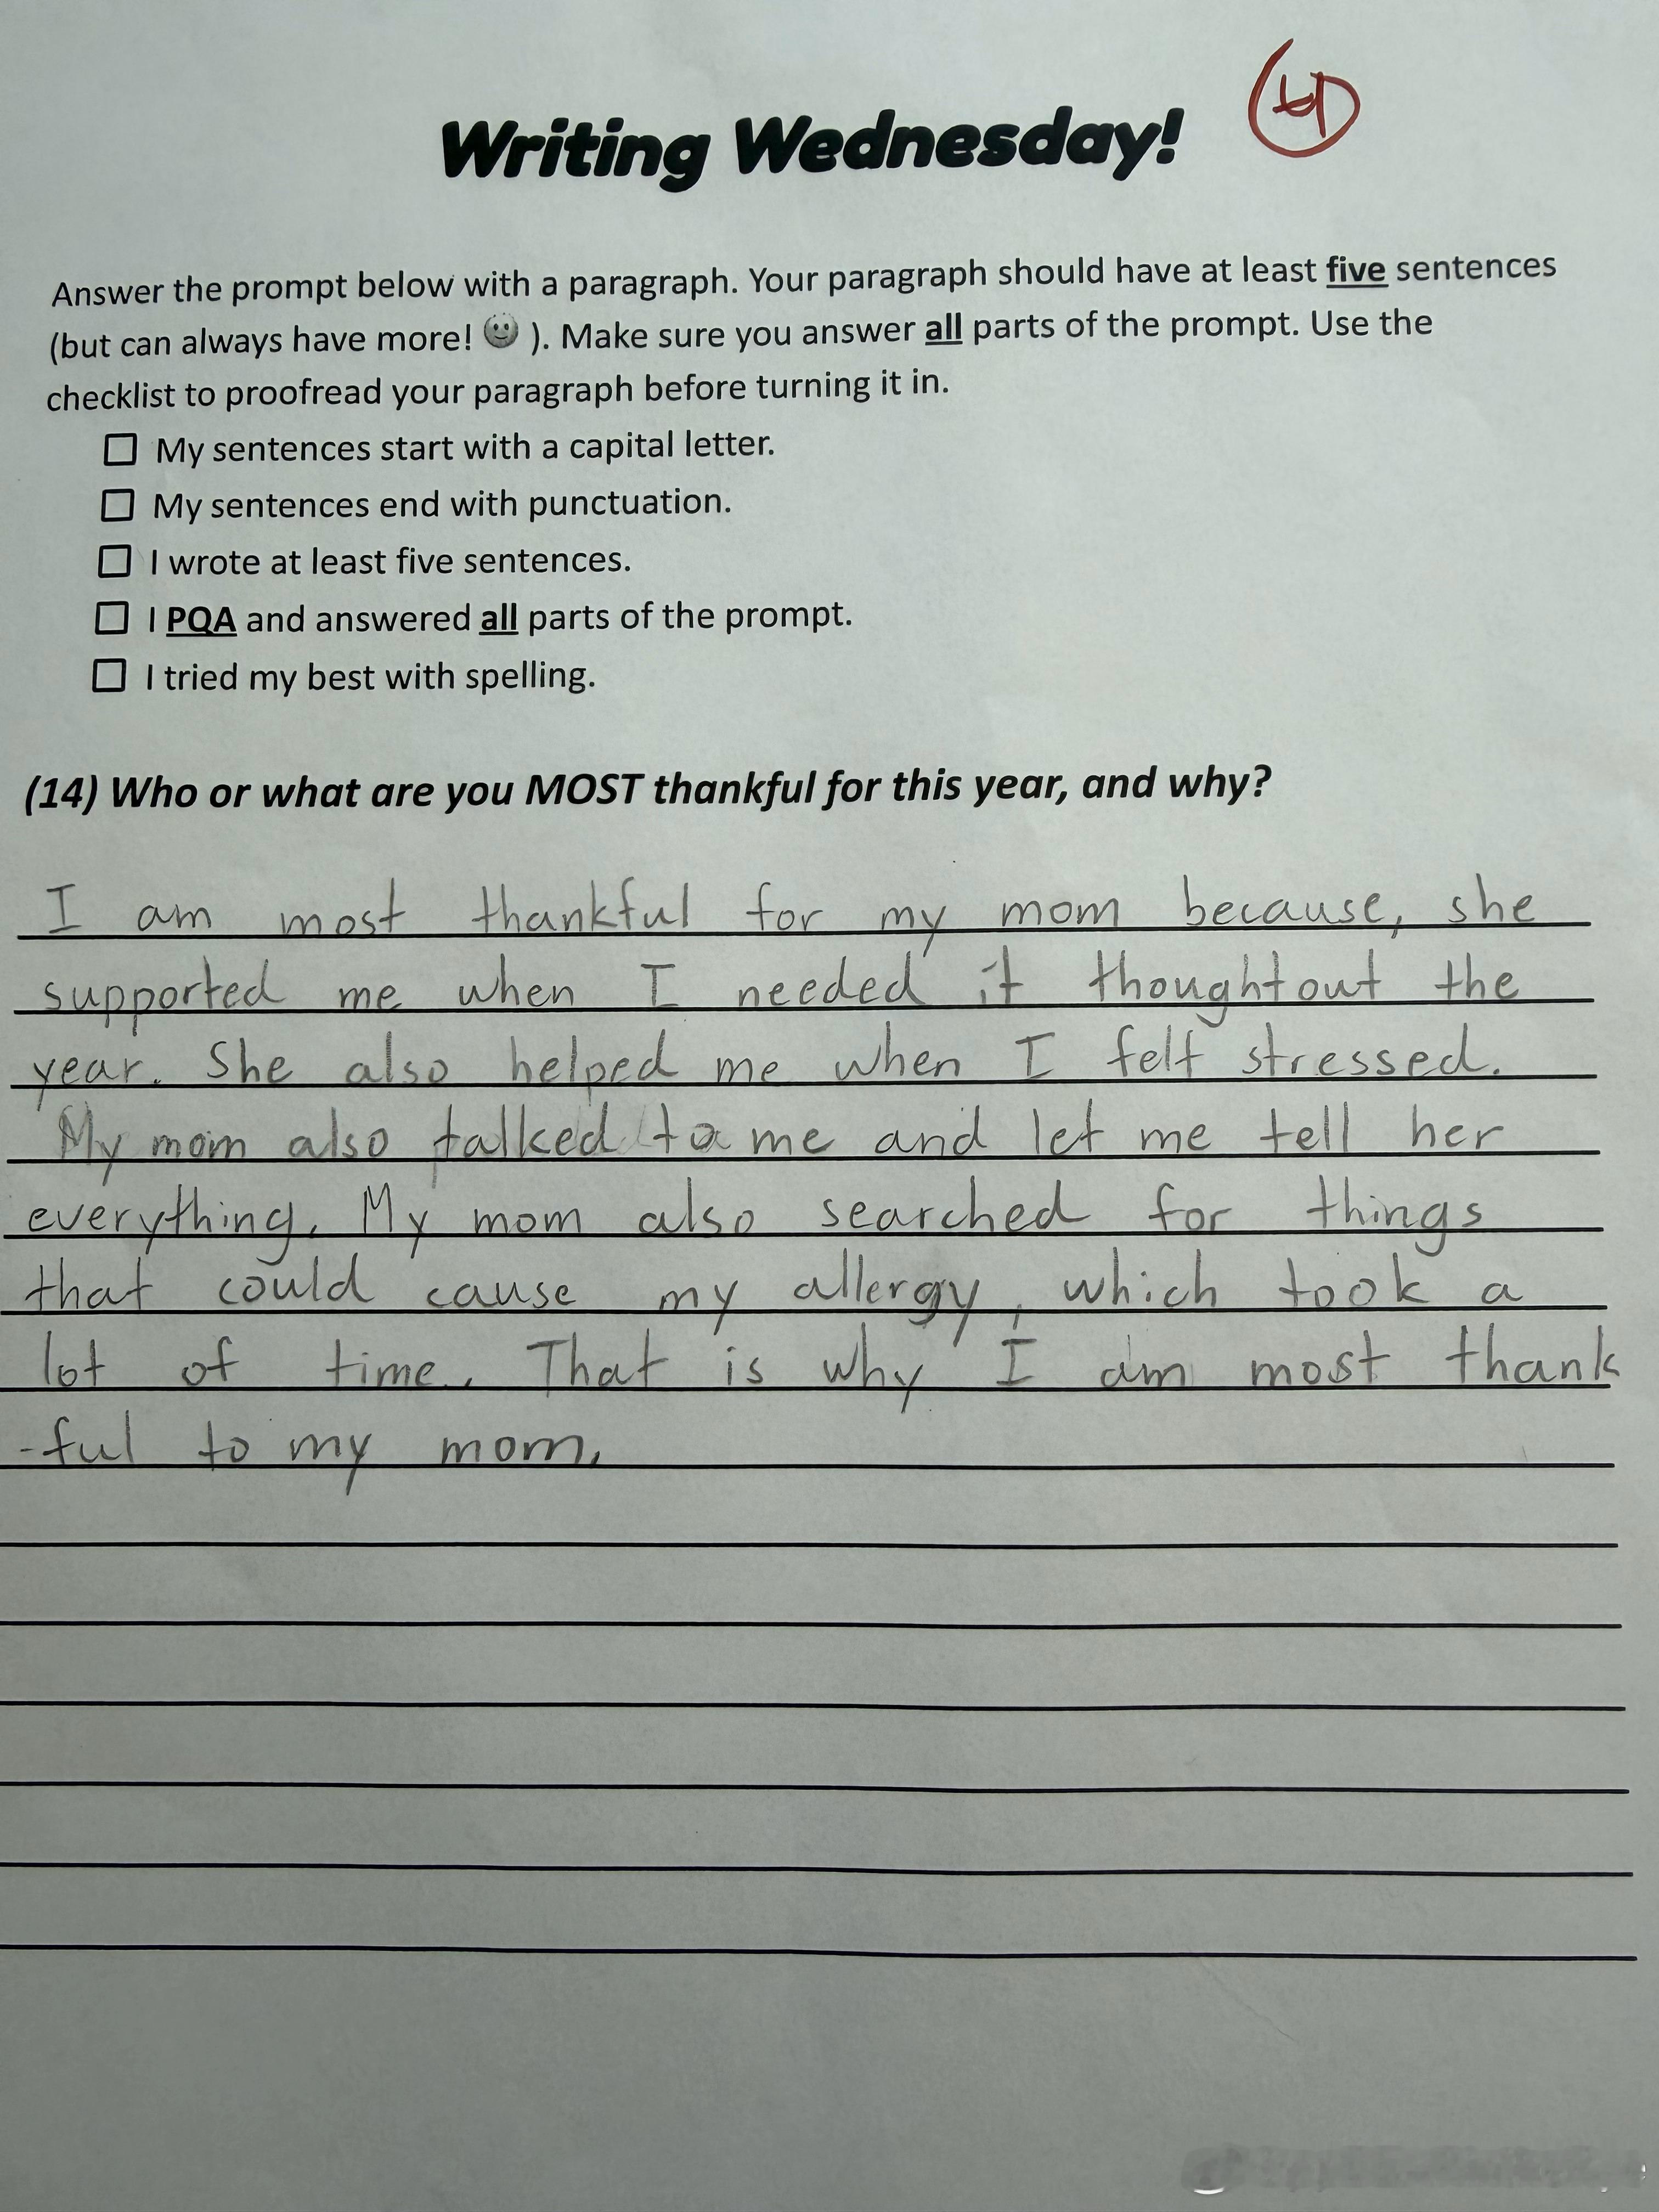 Writing Wednesday!
Answer the prompt below with a paragraph. Your paragraph should have at least five sentences
(but can always have more! ). Make sure you answer all parts of the prompt. Use the
checklist to proofread your paragraph before turning it in.
My sentences start with a capital letter.
My sentences end with punctuation.
I wrote at least five sentences.
I PQA and answered all parts of the prompt.
I tried my best with spelling.
(14) Who or what are you MOST thankful for this year, and why?
I am most thankful for my mom because, she
supported me when I needed it thoughtout the
year. She also helped me when I felt stressed.
My mom also talked to me and let me tell her
everything. My mom also searched for things
that could cause my allergy, which took a
lot of time. That is why I am most thank
-ful to my mom.